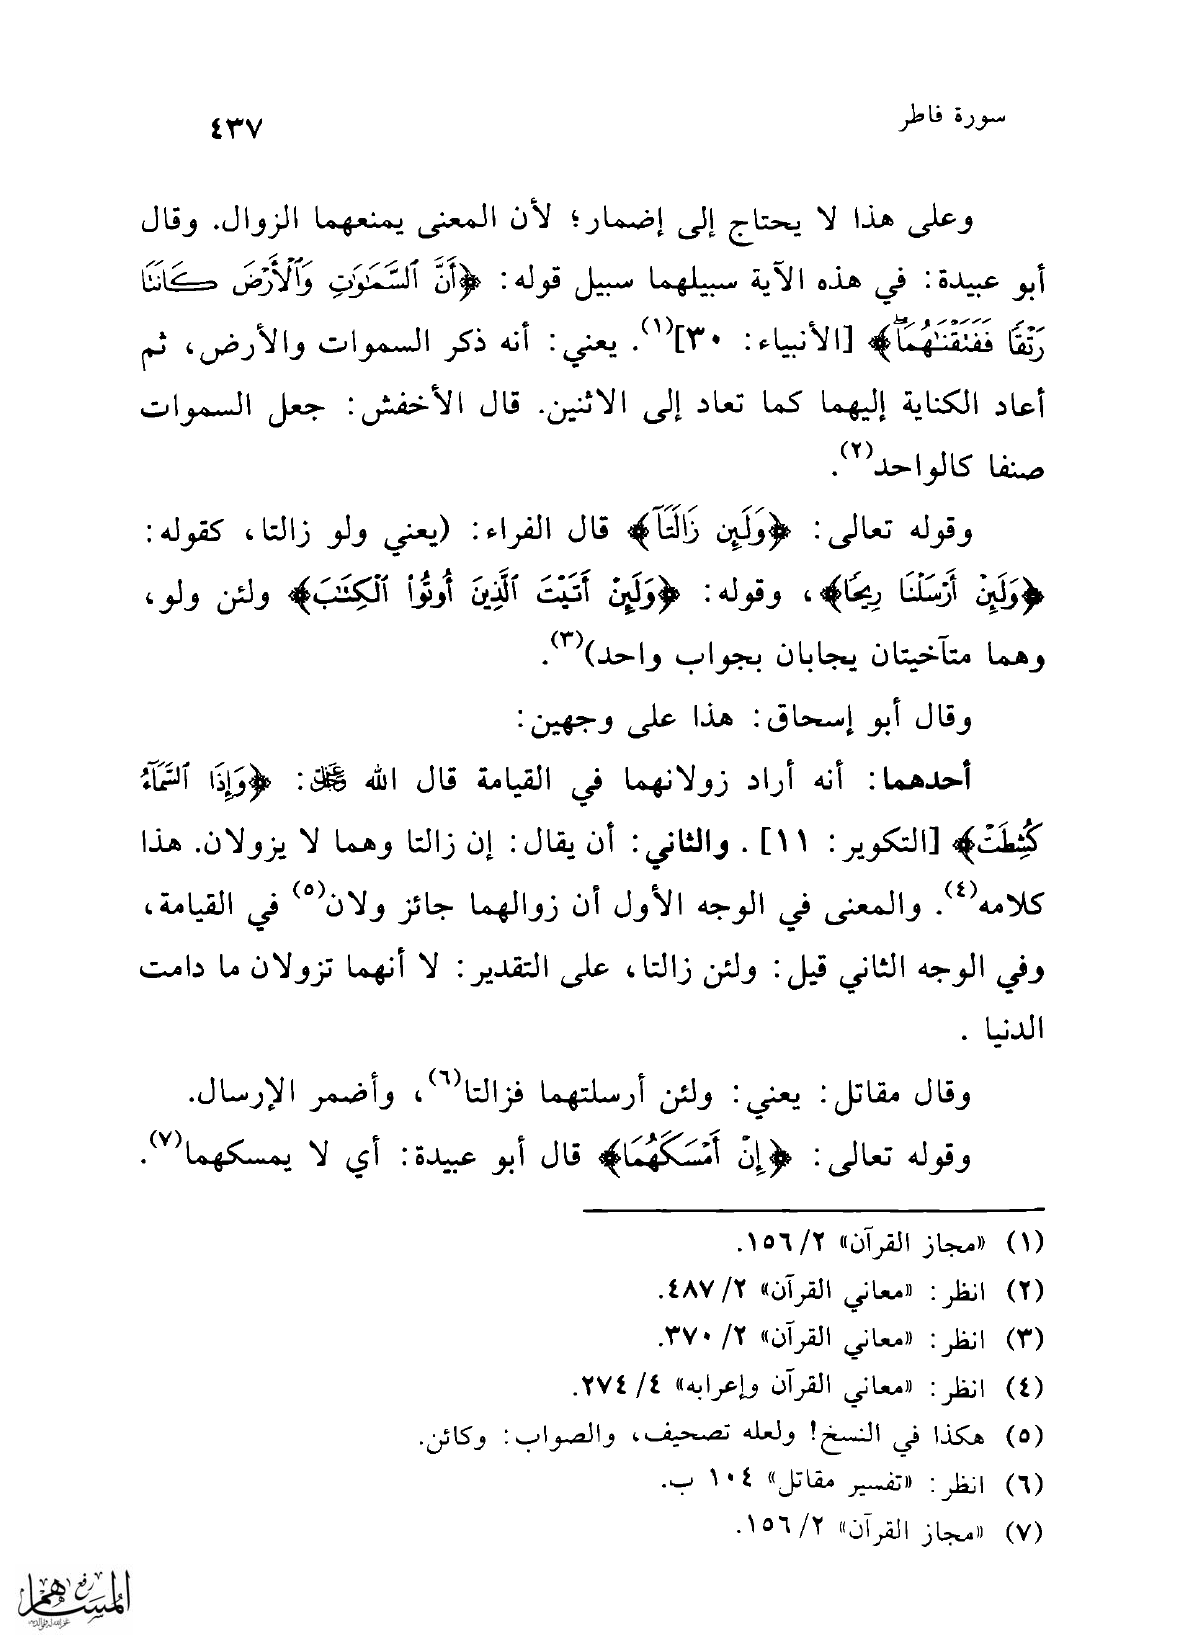 سورة فاطر
٤٣٧
وعلى هذا لا يحتاج إلى إضمار؛ لأن المعنى يمنعهما الزوال. وقال
أبو عبيدة: في هذه الآية سبيلهما سبيل قوله: ﴿أَنَّ ٱلسَّمَٰوَٰتِ وَٱلْأَرْضَ كَانَتَا
رَتْقًا فَفَتَقْنَٰهُمَا ۖ﴾ [الأنبياء: ٣٠](١). يعني: أنه ذكر السموات والأرض، ثم
أعاد الكناية إليهما كما تعاد إلى الاثنين. قال الأخفش: جعل السموات
صنفا كالواحد(٢).
وقوله تعالى: ﴿وَلَئِن زَالَتَآ﴾ قال الفراء: (يعني ولو زالتا، كقوله:
﴿وَلَئِنْ أَرْسَلْنَا رِيحًا﴾، وقوله: ﴿وَلَئِنْ أَتَيْتَ ٱلَّذِينَ أُوتُوا۟ ٱلْكِتَٰبَ﴾ ولئن ولو،
وهما متآخيتان يجابان بجواب واحد)(٣).
وقال أبو إسحاق: هذا على وجهين:
أحدهما: أنه أراد زولانهما في القيامة قال الله عَزَّ وَجَلَّ: ﴿وَإِذَا ٱلسَّمَآءُ
كُشِطَتْ﴾ [التكوير: ١١]. والثاني: أن يقال: إن زالتا وهما لا يزولان. هذا
كلامه(٤). والمعنى في الوجه الأول أن زوالهما جائز ولان(٥) في القيامة،
وفي الوجه الثاني قيل: ولئن زالتا، على التقدير: لا أنهما تزولان ما دامت
الدنيا .
وقال مقاتل: يعني: ولئن أرسلتهما فزالتا(٦)، وأضمر الإرسال.
وقوله تعالى: ﴿إِنْ أَمْسَكَهُمَا﴾ قال أبو عبيدة: أي لا يمسكهما(٧).
(١) «مجاز القرآن» ٢/ ١٥٦.
(٢) انظر: «معاني القرآن» ٢/ ٤٨٧.
(٣) انظر: «معاني القرآن» ٢/ ٣٧٠.
(٤) انظر: «معاني القرآن وإعرابه» ٤/ ٢٧٤.
(٥) هكذا في النسخ! ولعله تصحيف، والصواب: وكائن.
(٦) انظر: «تفسير مقاتل» ١٠٤ ب.
(٧) «مجاز القرآن» ٢/ ١٥٦.
رفع
المساهم